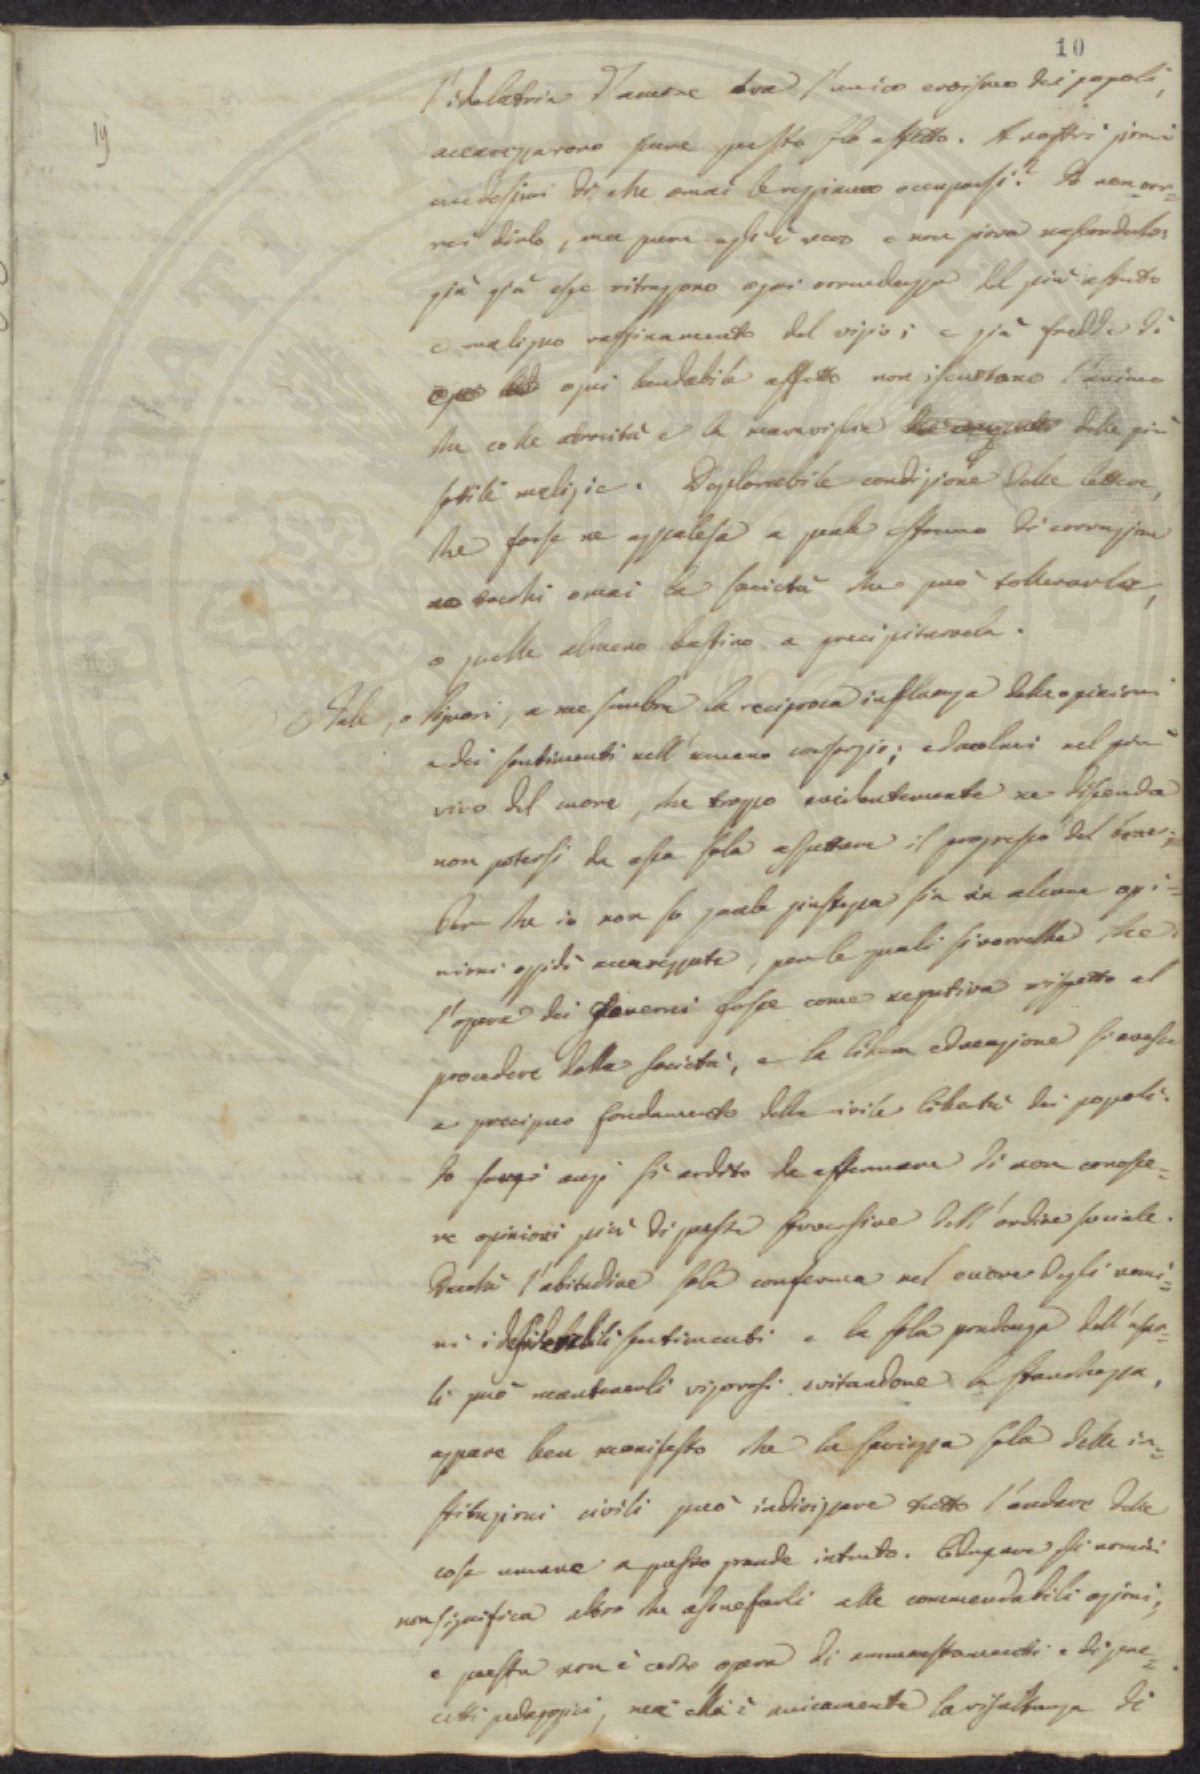 10
19
l'idolatria d'amore era l'unico eroismo dei popoli,
accarezzarono pure questo solo affetto. A nostri giorni
medesimi di che omai le veggiamo occuparsi? Io non vor=
rei dirlo, ma pure egli è vero e non giova nasconderlo:
già già esse ritraggono ogni orrendezza del più astuto
e maligno raffinamento del vizio; e già fredde di
ogni lendabile affetto non iscuotano l'animo
che co le atrocità e la maraviglia delle più
sottili malizie. Deplorabile condizione delle lettere,
che forse ne appalesa a quale estremo di corruzione
tocchi omai la società che può tollerarle,
o quelle almeno bastino a precipitarvela.
Tale, o Signori, a me sembra la reciproca influenza delle opinioni
e dei sentimenti nell'umano consorzio; e duolmi nel più
vivo del cuore, che troppo evidentemente ne discenda
non potersi da essa sola aspettare il progresso del bene.
Per che io non so quale giustezza sia in alcune opi=
nioni oggidì accarezzate, per le quali si vorrebbe che
l'opera dei Governi fosse come negativa rispetto al
procedere della società, e la libera educazione si avesse
a precipuo fondamento della civile libertà dei popoli.
Io sarei anzi sì ardito da affermare di non conosce=
re opinioni più di questa sovversive dell'ordine sociale.
Dacchè l'abitudine sola conferma nel cuore degli uomi=
ni i desiderabili sentimenti e la sola prudenza dell'usar=
li può mantenerli vigorosi evitandone la stanchezza,
appare ben manifesto che la saviezza sola delle in=
stituzioni civili può indirizzare tutto l'andare delle
cose umane a questo grande intento. Educare gli uomini
non significa altro che assuefarli alle commendabili azioni;
e questa non è certo opera di ammaestramenti e di pre=
cetti pedagogici, ma ella è unicamente la risultanza di